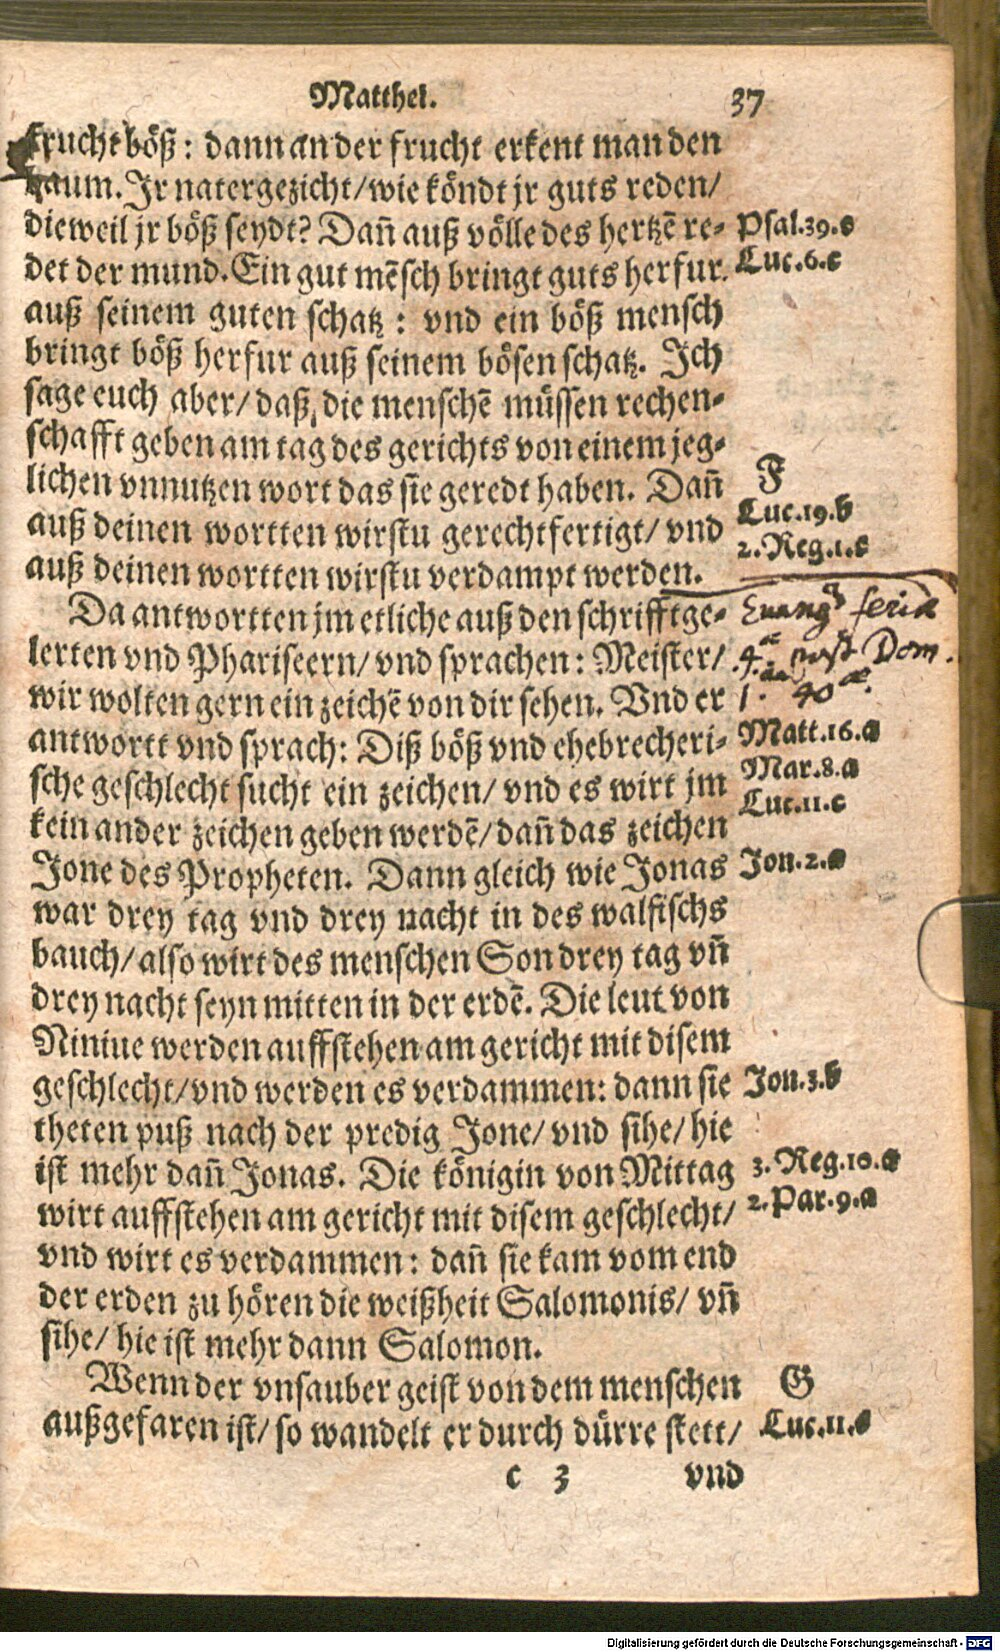 Matthei. 37
frucht böß: dann an der frucht erkent man den
baum. Jr natergezicht/ wie köndt jr guts reden/
dieweil jr böß seydt? Dañ auß völle des hertzē re-
det der mund. Ein gut mēsch bringt guts herfur
auß seinem guten schatz: vnd ein böß mensch
bringt böß herfur auß seinem bösen schatz. Ich
sage euch aber/ daß die menschē müssen rechen-
schafft geben am tag des gerichts von einem jeg-
lichen vnnutzen wort das sie geredt haben. Dañ
auß deinen wortten wirstu gerechtfertigt/ vnd
auß deinen wortten wirstu verdampt werden.
Da antwortten jm etliche auß den schrifftge-
lerten vnd Phariseern/ vnd sprachen: Meister/
wir wolten gern ein zeichē von dir sehen. Vnd er
antwortt vnd sprach: Diß böß vnd ehebrecheri-
sche geschlecht sucht ein zeichen/ vnd es wirt jm
kein ander zeichen geben werdē/ dañ das zeichen
Jone des Propheten. Dann gleich wie Jonas
war drey tag vnd drey nacht in des walfischs
bauch/ also wirt des menschen Son drey tag vñ
drey nacht seyn mitten in der erdē. Die leut von
Niniue werden auffstehen am gericht mit disem
geschlecht/ vnd werden es verdammen: dann sie
theten puß nach der predig Jone/ vnd sihe/ hie
ist mehr dañ Jonas. Die königin von Mittag
wirt auffstehen am gericht mit disem geschlecht/
vnd wirt es verdammen: dañ sie kam vom end
der erden zu hören die weißheit Salomonis/ vñ
sihe/ hie ist mehr dann Salomon.
Wenn der vnsauber geist von dem menschen
außgefaren ist/ so wandelt er durch dürre stett/
c 3 vnd
Psal.39.c
Luc.6.c
F
Luc.19.b
2.Reg.1.c
Euang. feria
4.ª post Dom.
1. 40.
Matt.16.a
Mar.8.a
Luc.11.c
Jon.2.a
Jon.3.b
3.Reg.10.a
2.Par.9.a
G
Luc.11.c
Digitalisierung gefördert durch die Deutsche Forschungsgemeinschaft - DFG